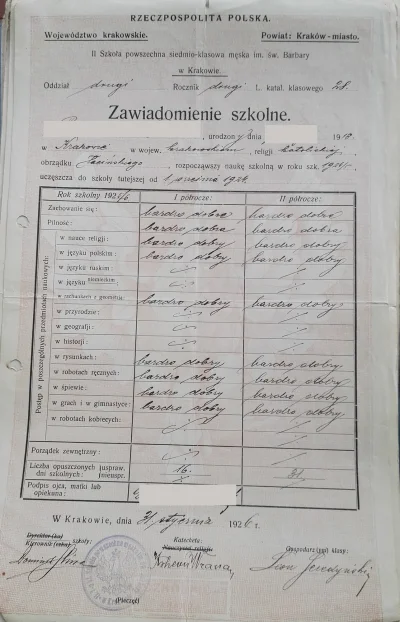 RZECZPOSPOLITA POLSKA.
Województwo krakowskie. Powiat: Kraków-miasto.
II Szkoła powszechna siedmio-klasowa męska im. św. Barbary
w Krakowie.
Oddział drugi Rocznik drugi L. katal. klasowego 28.
Zawiadomienie szkolne.
urodzony dnia 19
w Krakowie w wojew. krakowskiem, religji katolickiej
obrządku łacińskiego, rozpocząwszy naukę szkolną w roku szk.
uczęszcza do szkoły tutejszej od 1 września 1924
Rok szkolny 1925/6 I półrocze: II półrocze:
Zachowanie się: bardzo dobre bardzo dobre
Pilność: bardzo dobra bardzo dobra
Postęp w poszczególnych przedmiotach naukowych:
w nauce religji: bardzo dobry bardzo dobry
w języku polskim: bardzo dobry bardzo dobry
w języku ruskim
w języku niemieckim
w rachunkach z geometrją: bardzo dobry bardzo dobry
w przyrodzie:
w geografji:
w historji:
w rysunkach: bardzo dobry bardzo dobry
w robotach ręcznych: bardzo dobry bardzo dobry
w śpiewie: bardzo dobry bardzo dobry
w grach i w gimnastyce: bardzo dobry bardzo dobry
w robotach kobiecych:
Porządek zewnętrzny:
Liczba opuszczonych dni szkolnych: uspraw. 16.
nieuspr.
Podpis ojca, matki lub opiekuna:
W Krakowie, dnia 31 stycznia 1926 r.
Dyrektor (ka)
Kierownik szkoły: Katecheta: Gospodarz (yni) klasy:
Nauczyciel religji:
(Pieczęć)